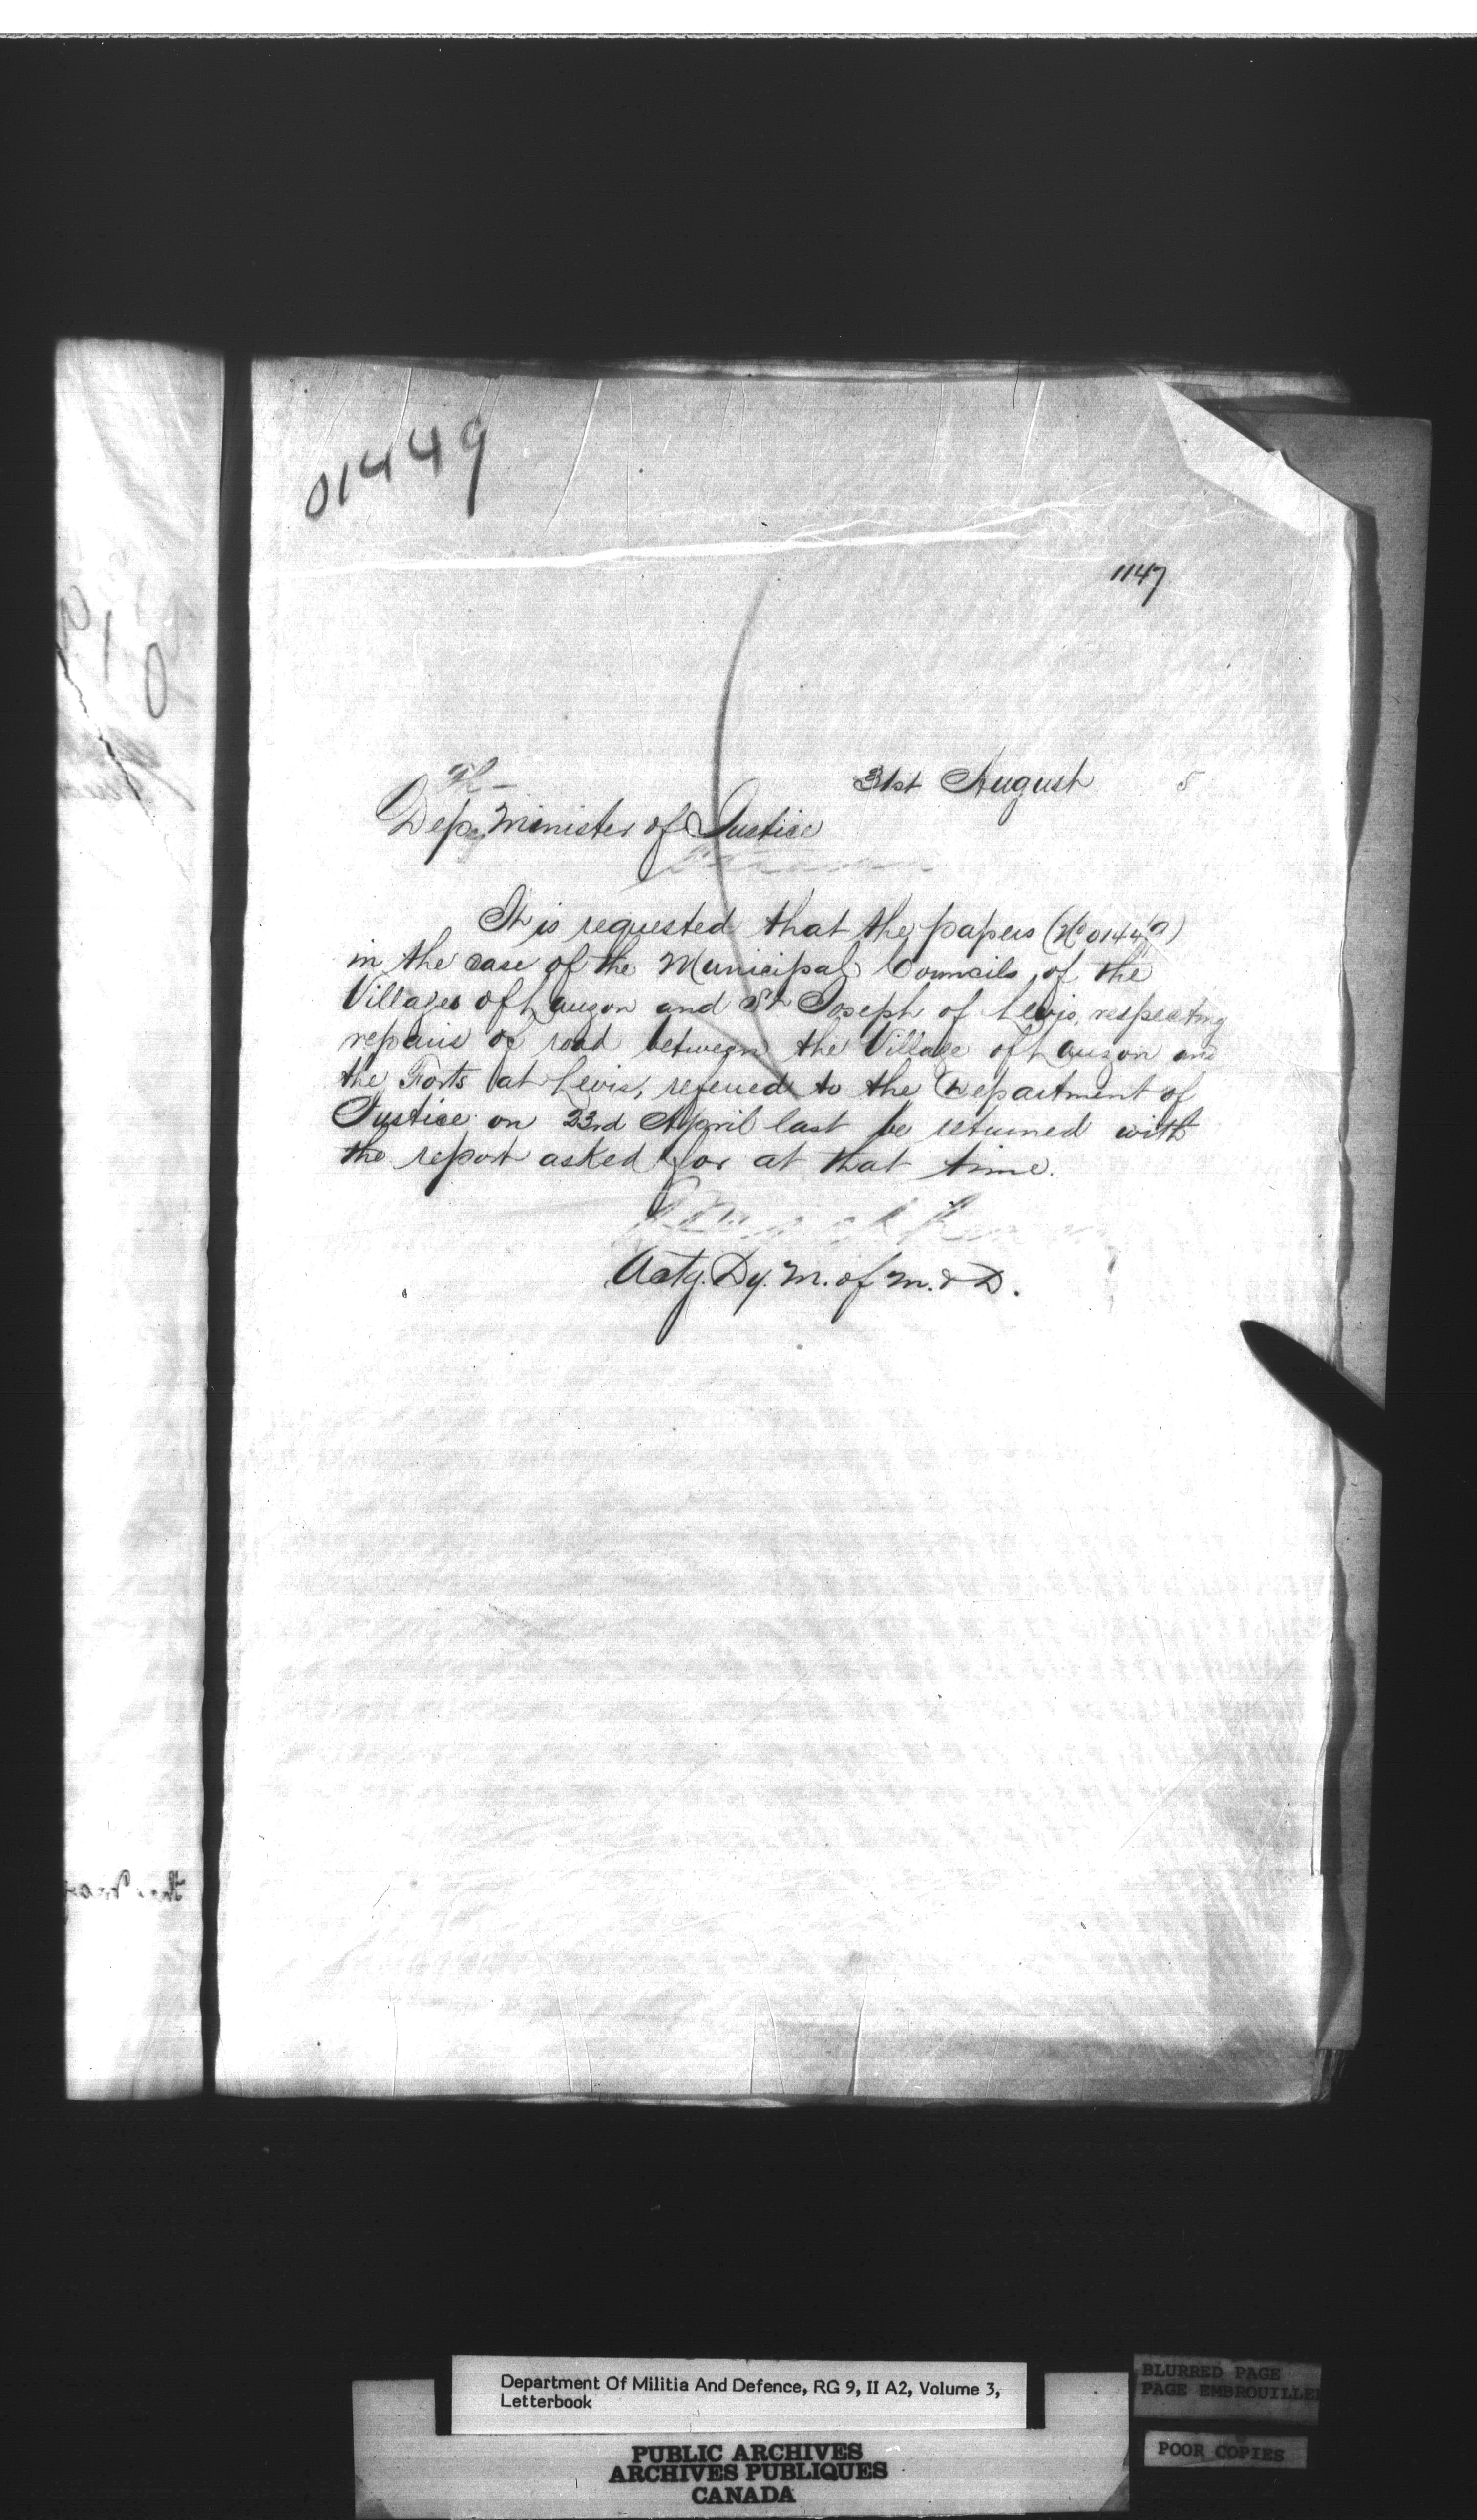 01449
1147
31st August 5
The
Depy Minister of Justice
It is requested that the papers (No 01449)
in the case of the Municipal Councils of the
Villages of Lauzon and St Joseph of Levis, respecting
repairs of road between the Village of Lauzon and
the Forts at Levis, referred to the Department of
Justice on 23rd April last be returned with
the report asked for at that time.
Actg. Dy. M. of M. & D.
Department Of Militia And Defence, RG 9, II A2, Volume 3,
Letterbook
BLURRED PAGE
PAGE EMBROUILLE
POOR COPIES
PUBLIC ARCHIVES
ARCHIVES PUBLIQUES
CANADA